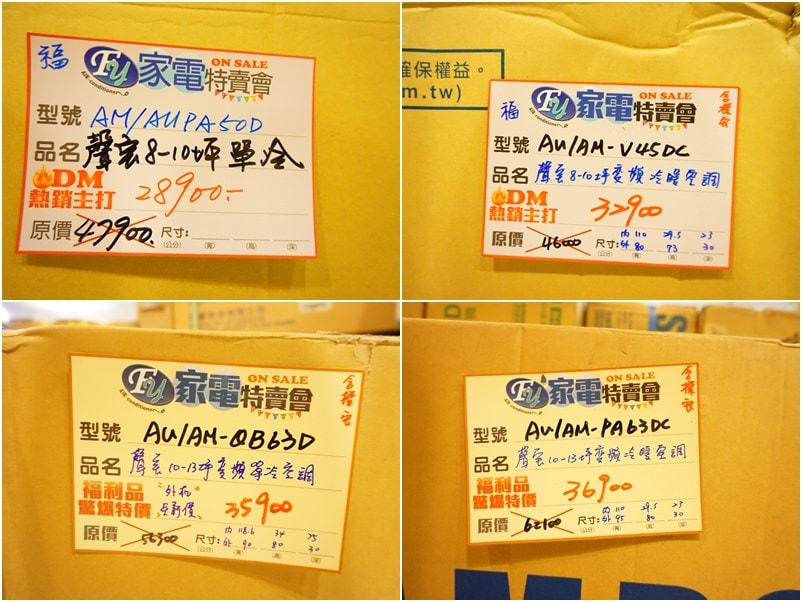 福
FU 家電特賣會
ON SALE
AIR conditioner
型號 AM/AUPA50D
品名 聲寶8-10坪單冷
DM
熱銷主打 28900.-
原價 47900. 尺寸:
(公分) (寬) (高) (深)
確保權益。
m.tw)
福
FU 家電特賣會
ON SALE
AIR conditioner
含標安
型號 AU/AM-V45DC
品名 聲寶8-10坪變頻冷暖空調
DM
熱銷主打 32900
原價 46000 尺寸: 內 110 29.5 23
外 80 93 30
(公分) (寬) (高) (深)
FU 家電特賣會
ON SALE
AIR conditioner
含標安
型號 AU/AM-QB63D
品名 聲寶10-13坪變頻單冷空調
福利品
驚爆特價 外in 35900
原價 56300 尺寸: 內 118.6 34 25
外 90 80 30
(公分) (寬) (高) (深)
FU 家電特賣會
ON SALE
AIR conditioner
含標安
型號 AU/AM-PA63DC
品名 聲寶10-13坪變頻冷暖空調
福利品
驚爆特價 36900
原價 62100 尺寸: 內 110 29.5 23
外 95 80 30
(公分) (寬) (高) (深)